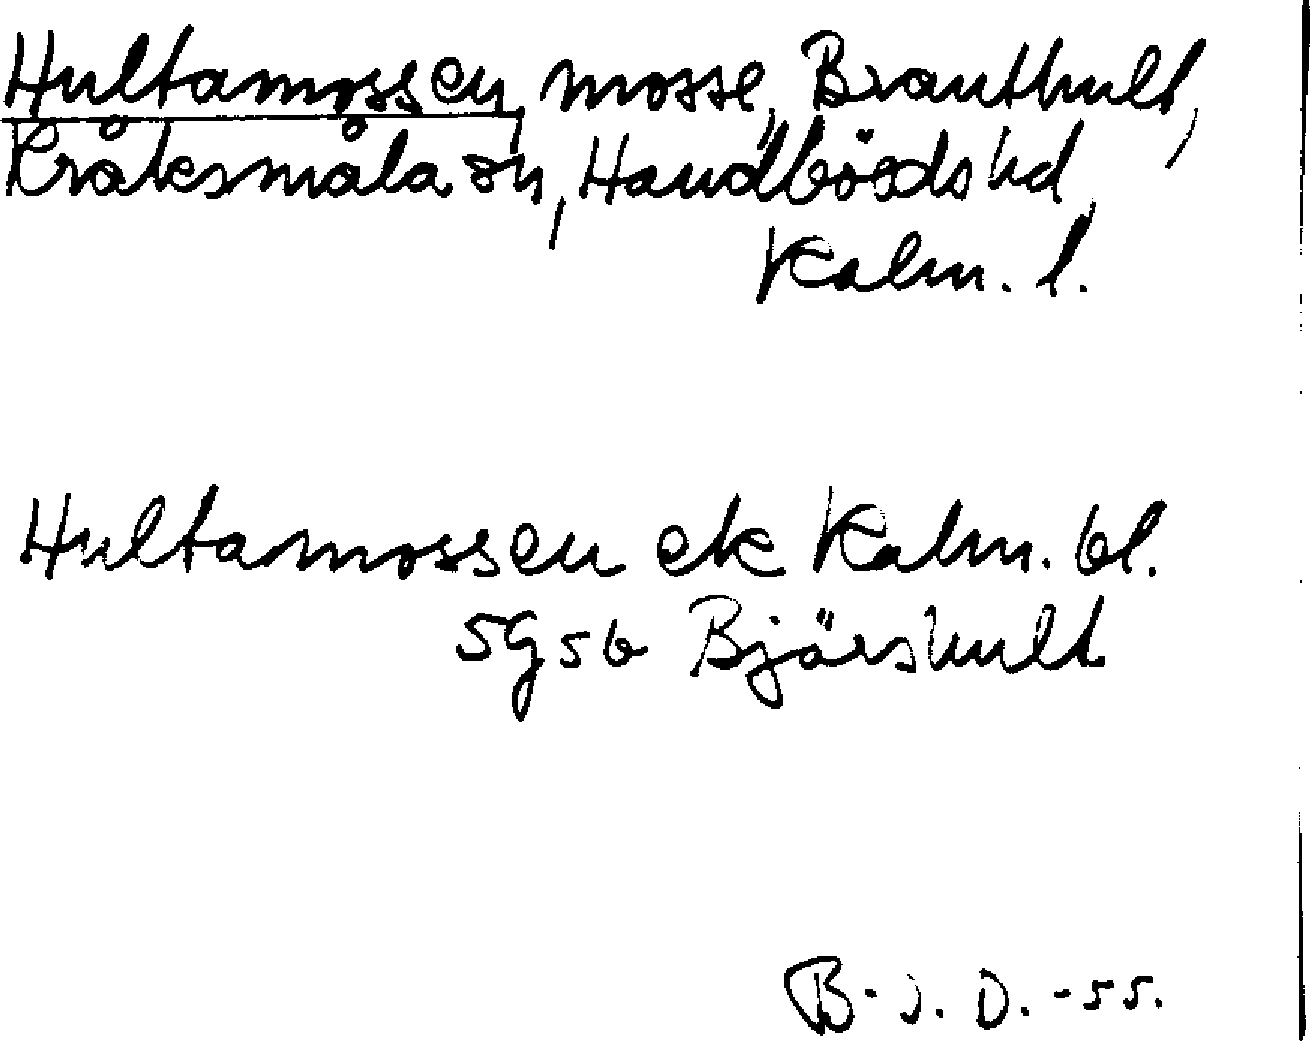 Hultamossen, mosse, Brauthult,
Kråksmåla sn, Handbörds hd,
Kalm. l.
Hultamossen ek Kalm. bl.
5G5b Bjärshult
B-J. D. -55.